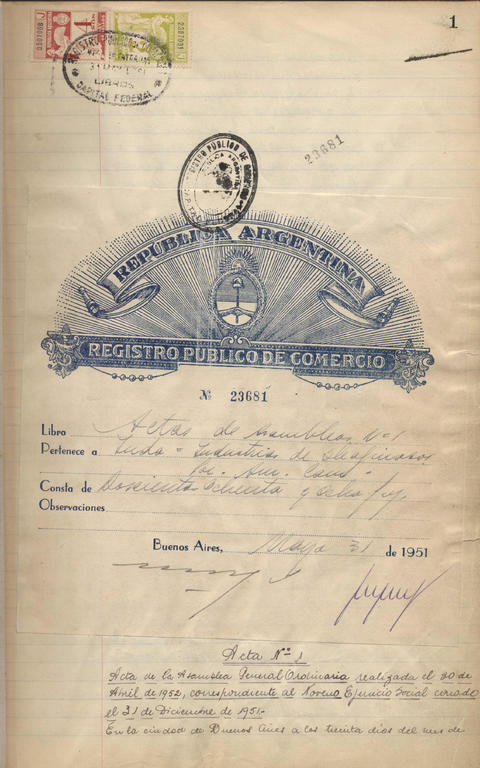 1
4
REGISTRO PUBLICO
CAPITAL FEDERAL
REGISTRO PUBLICO DE
23681
REPUBLICA ARGENTINA
REGISTRO PUBLICO DE COMERCIO
Nº 23681
Libro Actas de Asambleas Nº 1
Pertenece a "Industrias de Oleaginosos
Soc. An. Com."
Consta de Doscientos ochenta y ocho fojas
Observaciones
Buenos Aires, Mayo 31 de 1951
Acta Nº 1
Acta de la Asamblea General Ordinaria realizada el 30 de
Abril de 1952, correspondiente al Noveno Ejercicio Social cerrado
el 31 de Diciembre de 1951.-
En la ciudad de Buenos Aires a los treinta días del mes de